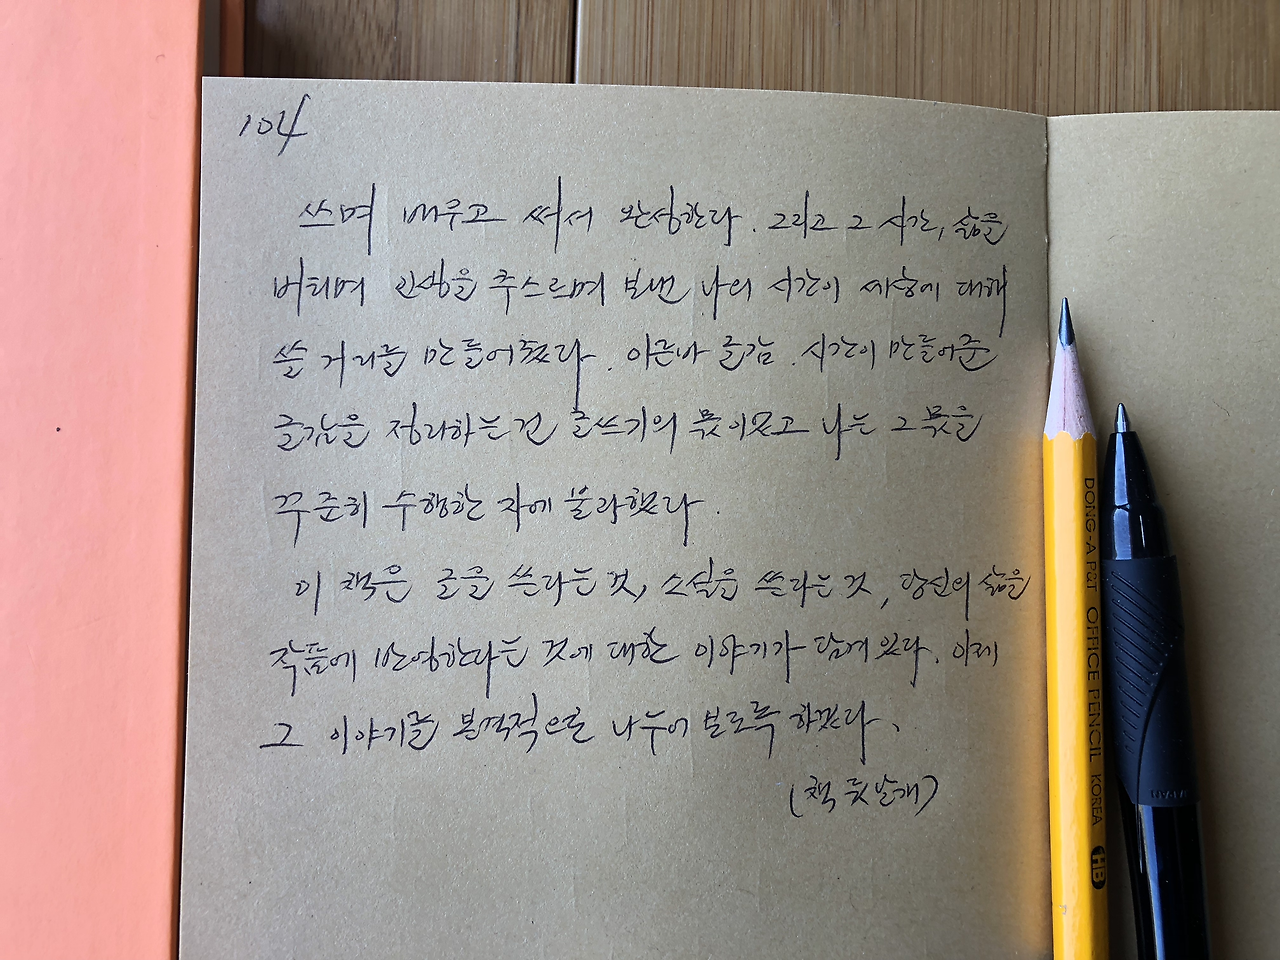 104
쓰며 배우고 써서 완성한다. 그리고 그 시간, 삶을
버티며 인생을 추스르며 보낸 나의 시간이 세상에 대해
쓸 거리를 만들어줬다. 이른바 글감. 시간이 만들어준
글감을 정리하는 건 글쓰기의 몫이었고 나는 그 몫을
꾸준히 수행한 자에 불과했다.
이 책은 글을 쓴다는 것, 소설을 쓴다는 것, 당신의 삶을
작품에 반영한다는 것에 대한 이야기가 담겨 있다. 이제
그 이야기를 본격적으로 나누어 보도록 하겠다.
(책 뒷날개)
DONG-A P&T OFFICE PENCIL KOREA HB
JAPAN